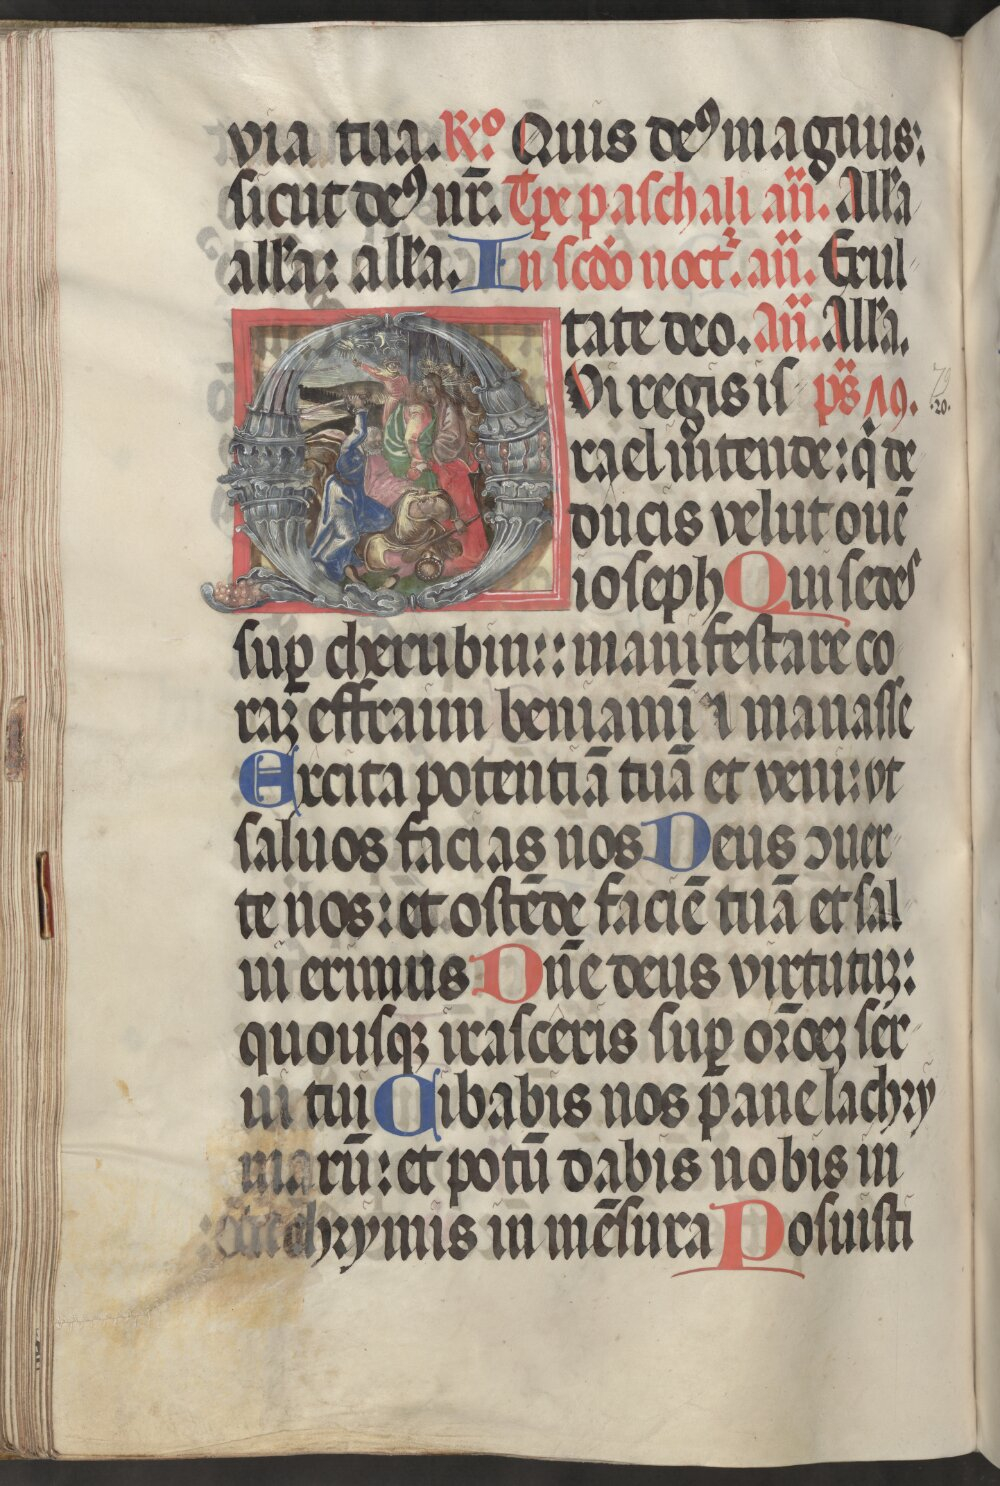 via tua. R:º Quis deꝰ magnus:
sicut deꝰ nr̄. Tp̄e paschali an̄. Alľa
alľa: alľa. In scd̄o noct. an̄. Exul
tate deo. An̄. Alľa.
Qui regis is ps̄ 79.
.20.
rael intende: q̇ de
ducis velut ouē
ioseph Qui sedes
suꝑ cherubin:: manifestare co
raȝ effraim beniamī ⁊ manasse
Excita potentiā tuā et veni: vt
saluos facias nos Deus ↄuer
te nos: et ostēde faciē tuā et sal
ui erimus Dn̄e deus virtutuȝ:
quousqȝ irasceris suꝑ or̄oeȝ ser
ui tui Cibabis nos pane lachry
marū: et potū dabis nobis in
lachrymis in mēsura Posuisti